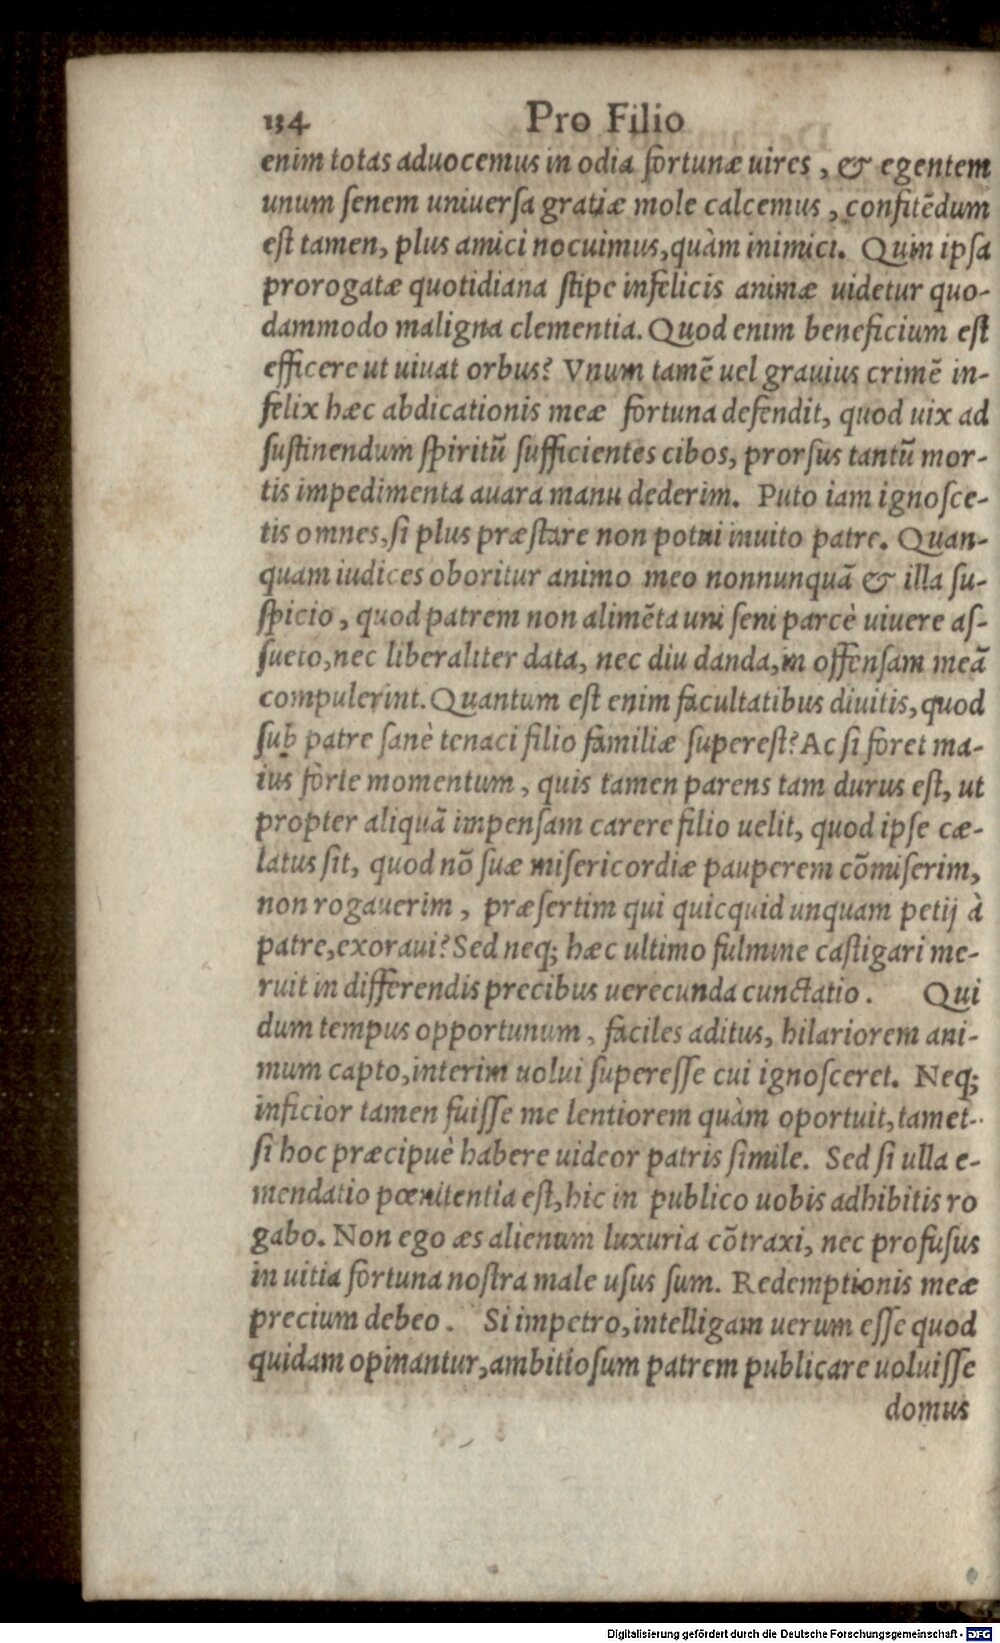 134 Pro Filio
enim totas aduocemus in odia fortunæ uires, & egentem
unum senem uniuersa gratiæ mole calcemus, confitẽdum
est tamen, plus amici nocuimus, quàm inimici. Quin ipsa
prorogatæ quotidiana stipe infelicis animæ uidetur quo-
dammodo maligna clementia. Quod enim beneficium est
efficere ut uiuat orbus? Vnum tamẽ uel grauius crimẽ in-
felix hæc abdicationis meæ fortuna defendit, quod uix ad
sustinendum spiritũ sufficientes cibos, prorsus tantũ mor-
tis impedimenta auara manu dederim. Puto iam ignosce-
tis omnes, si plus præstare non potui inuito patre. Quan-
quam iudices oboritur animo meo nonnunquã & illa su-
spicio, quod patrem non alimẽta uni seni parcè uiuere as-
sueto, nec liberaliter data, nec diu danda, in offensam meã
compulerint. Quantum est enim facultatibus diuitis, quod
sub patre sanè tenaci filio familiæ superest? Ac si foret ma-
ius forte momentum, quis tamen parens tam durus est, ut
propter aliquã impensam carere filio uelit, quod ipse cæ-
latus sit, quod nõ suæ misericordiæ pauperem cõmiserim,
non rogauerim, præsertim qui quicquid unquam petij à
patre, exoraui? Sed neq; hæc ultimo fulmine castigari me-
ruit in differendis precibus uerecunda cunctatio. Qui
dum tempus opportunum, faciles aditus, hilariorem ani-
mum capto, interim uolui superesse cui ignosceret. Neq;
inficior tamen fuisse me lentiorem quàm oportuit, tamet-
si hoc præcipuè habere uideor patris simile. Sed si ulla e-
mendatio pœnitentia est, hic in publico uobis adhibitis ro
gabo. Non ego æs alienum luxuria cõtraxi, nec profusus
in uitia fortuna nostra male usus sum. Redemptionis meæ
precium debeo. Si impetro, intelligam uerum esse quod
quidam opinantur, ambitiosum patrem publicare uoluisse
domus
Digitalisierung gefördert durch die Deutsche Forschungsgemeinschaft - DFG